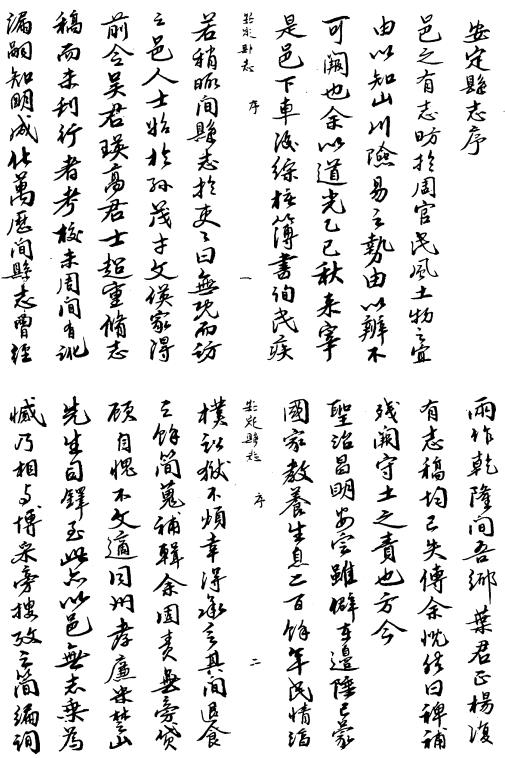 安定縣志序
邑之有志昉於周官民風土物之宜
由以知山川險易之勢由以辨不
可闕也余以道光乙巳秋來宰
是邑下車後綜核簿書詢民疾
安定縣志 序 一
苦稍暇問縣志於吏吏曰無既而訪
之邑人士始於孫茂才文 家得
前令吴君瑛高君士超重脩志
稿而未刊行者考校未周間有訛
漏嗣知明成化萬歷間縣志曾經
兩作乾隆間吾鄉葉君正楊復
有志稿均已失傳余怳然曰裨補
殘闕守土之責也方今
聖治昌明安定雖僻在邊陲已蒙
國家教養生息二百餘年民情淳
安定縣志 序 二
樸訟獄不煩幸得承之其間退食
之餘簡蒐補輯余固責無旁貸
顧自愧不文適同州孝廉米楚山
先生司鐸至此亦以邑無志乘為
憾乃相与博采旁搜攷之簡編詢